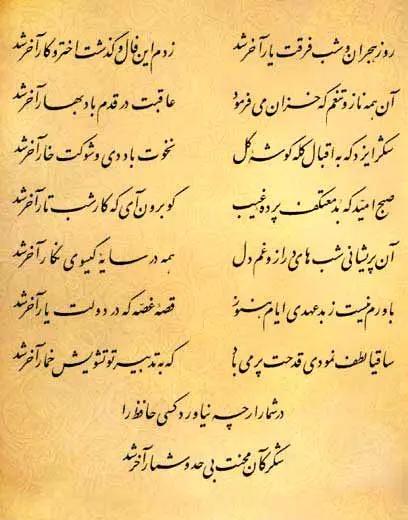 روز هجران و شب فرقت یار آخر شد زدم این فال و گذشت اختر و کار آخر شد
آن همه ناز و تنعم که خزان می فرمود عاقبت در قدم باد بهار آخر شد
شکر ایزد که به اقبال کله گوشه گل نخوت باد دی و شوکت خار آخر شد
صبح امید که بد معتکف پرده غیب گو برون آی که کار شب تار آخر شد
آن پریشانی شب های دراز و غم دل همه در سایه گیسوی نگار آخر شد
باورم نیست ز بدعهدی ایام هنوز قصه غصه که در دولت یار آخر شد
ساقیا لطف نمودی قدحت پر می باد که به تدبیر تو تشویش خمار آخر شد
در شمار ار چه نیاورد کسی حافظ را
شکر کآن محنت بی حد و شمار آخر شد